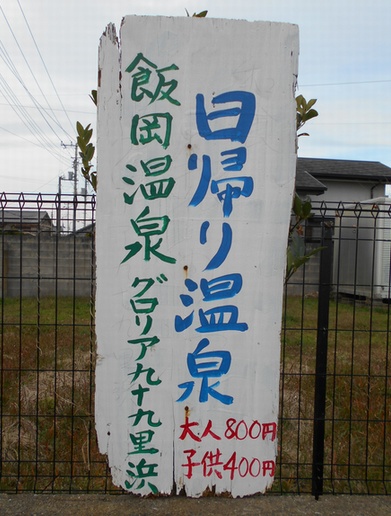 日帰り温泉
大人800円
子供400円
飯岡温泉 グロリア九十九里浜